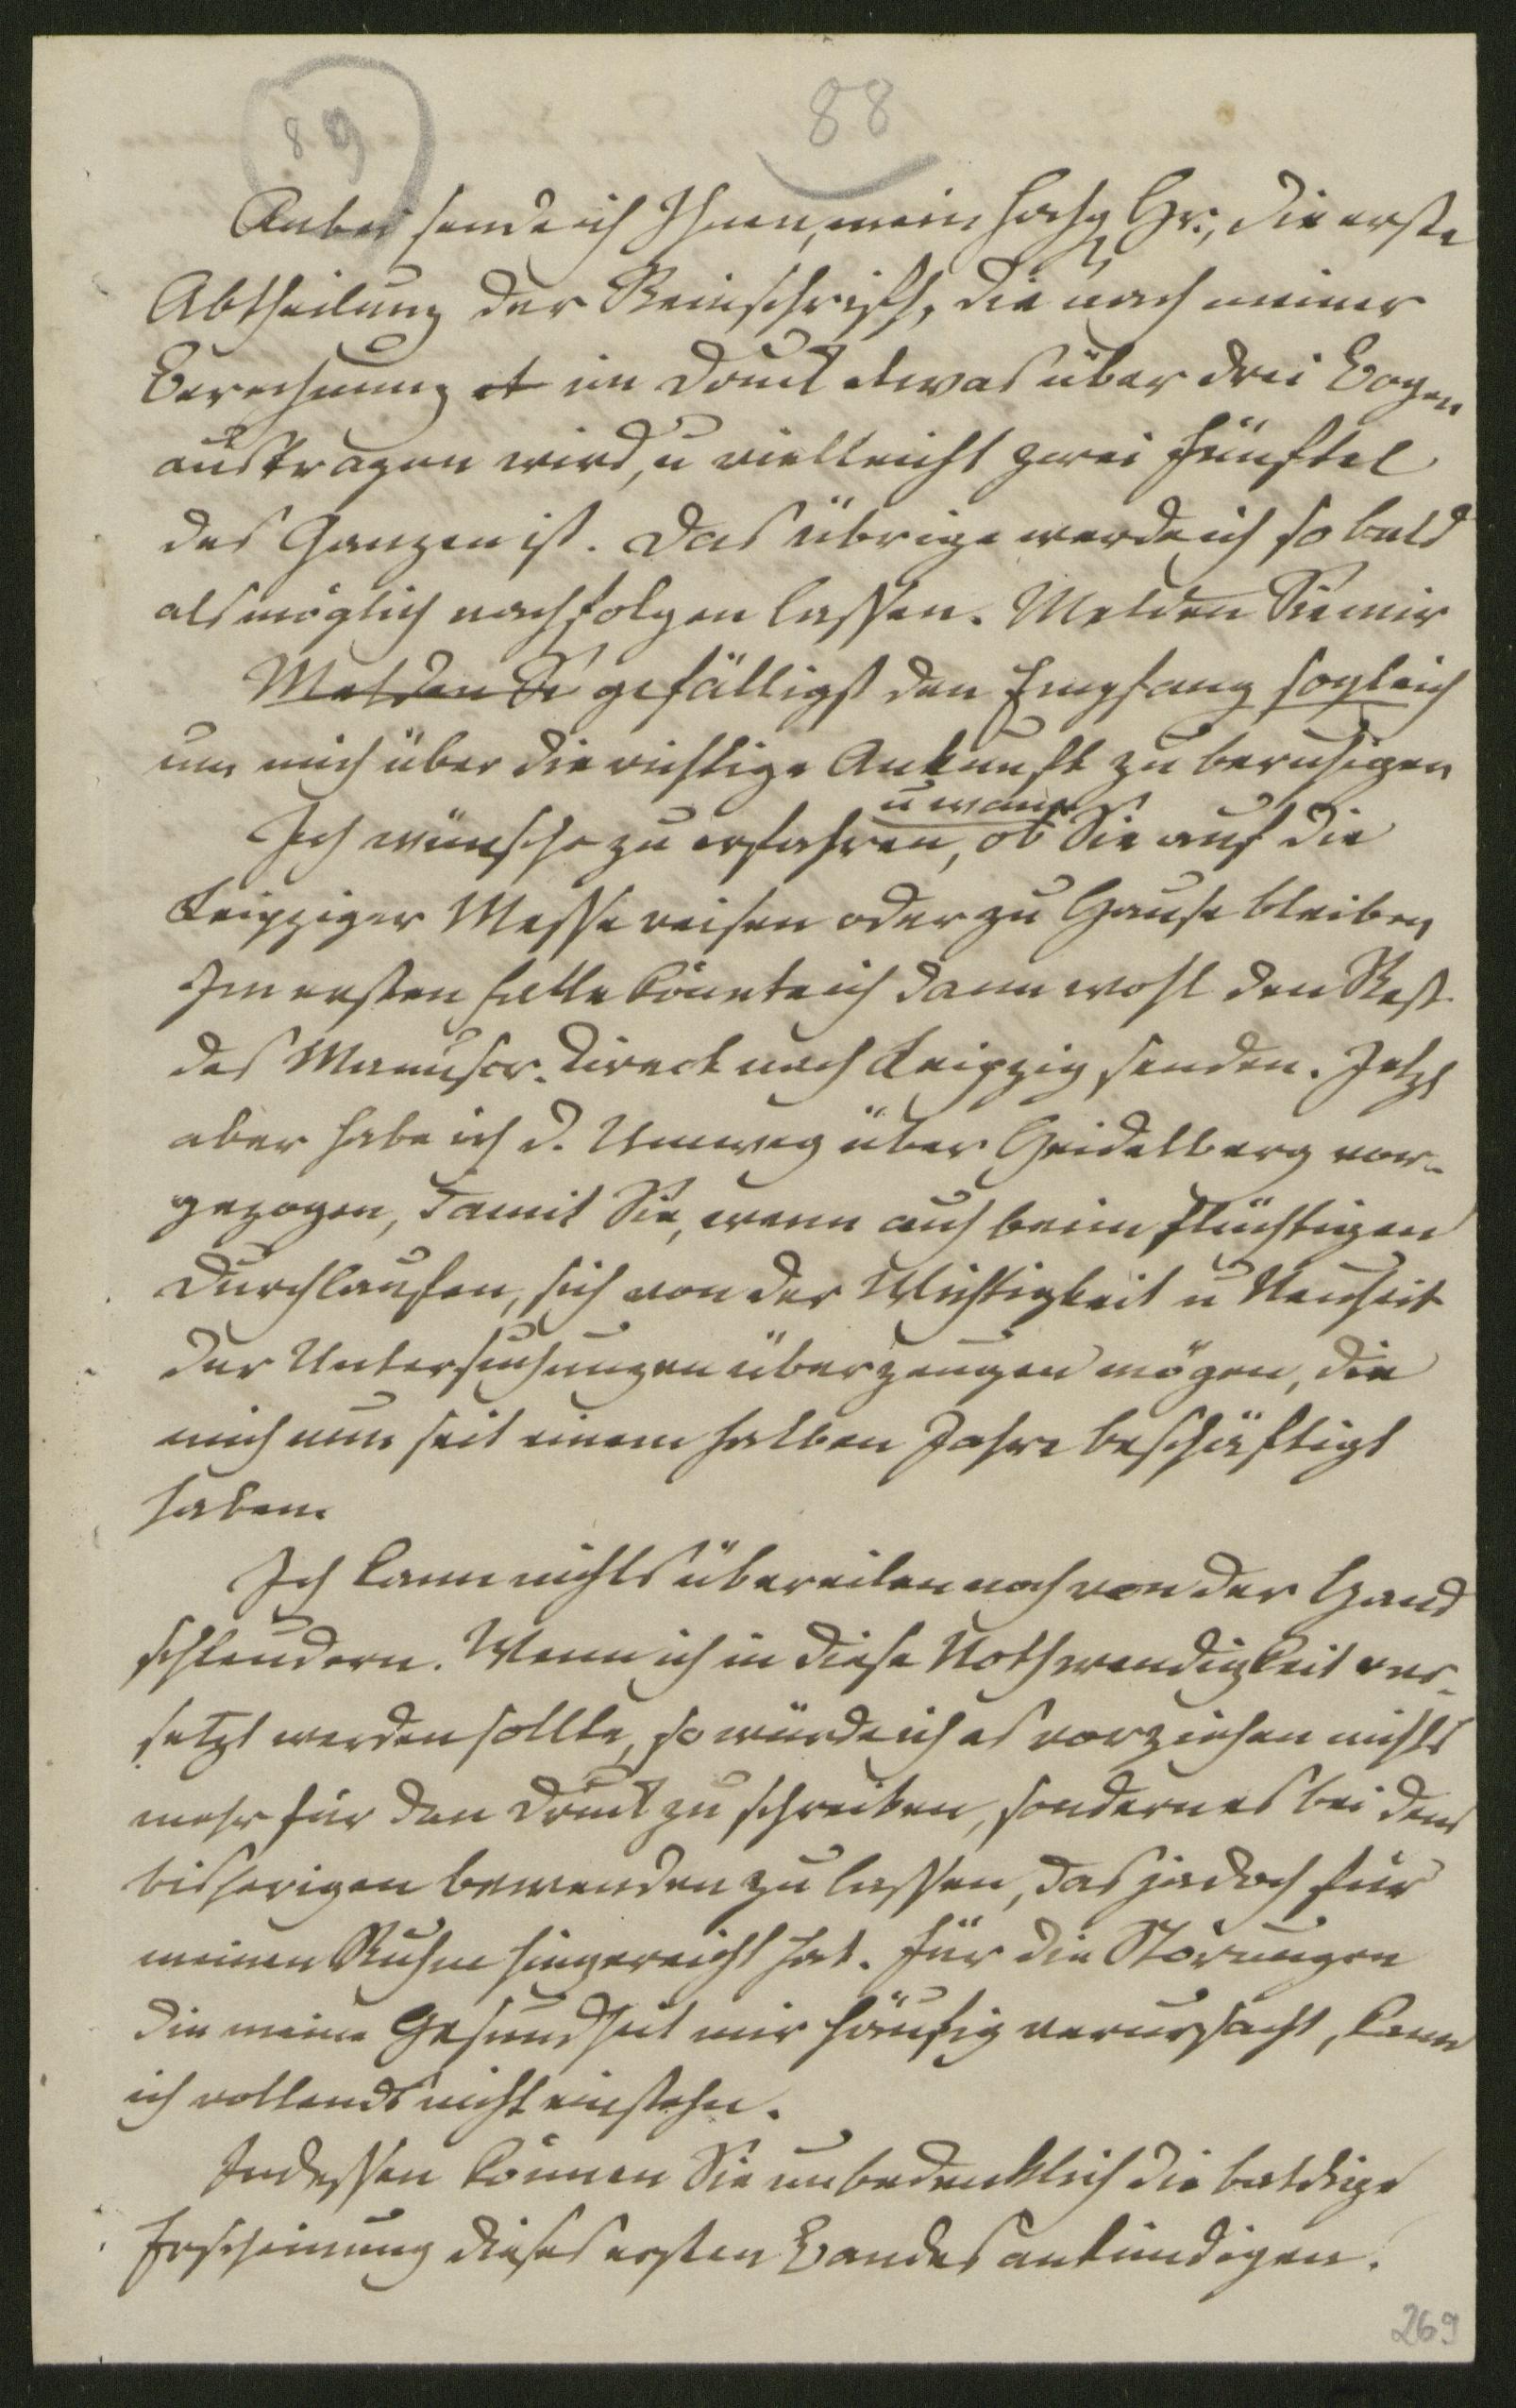 89
88
Anbei sende ich Ihnen, mein hochg Hr., die erste
Abtheilung der Reinschrift, die nach meiner
Berechnung et im Druck etwas über drei Bogen
austragen wird, u vielleicht zwei Fünftel
des Ganzen ist. Das übrige werde ich so bald
als möglich nachfolgen lassen. Melden Sie mir
Melden Si gefälligst den Empfang sogleich
um mich über die richtige Ankunft zu beruhigen
u wann
Ich wünsche zu erfahren, ob Sie auf die
Leipziger Messe reisen oder zu Hause bleiben
Im ersten Falle könnte ich dann wohl den Rest
des Manuscr. direct nach Leipzig senden. Jetzt
aber habe ich d. Umweg über Heidelberg vor-
gezogen, damit Sie, wenn auch beim flüchtigen
Durchlaufen, sich von der Wichtigkeit u Neuheit
der Untersuchungen überzeugen mögen, die
mich nun seit einem halben Jahre beschäftigt
haben.
Ich kann nichts übereilen noch von der Hand
schleudern. Wenn ich in diese Nothwendigkeit ver-
setzt werden sollte, so würde ich es vorziehen nichts
mehr für den Druck zu schreiben, sondern es bei dem
bisherigen bewenden zu lassen, das ja doch für
meinen Ruhm hingereicht hat. Für die Störungen
die meine Gesundheit mir häufig verursacht, kann
ich vollends nicht einstehn.
Indessen können Sie unbedenklich die baldige
Erscheinung dieses ersten Bandes ankündigen.
269